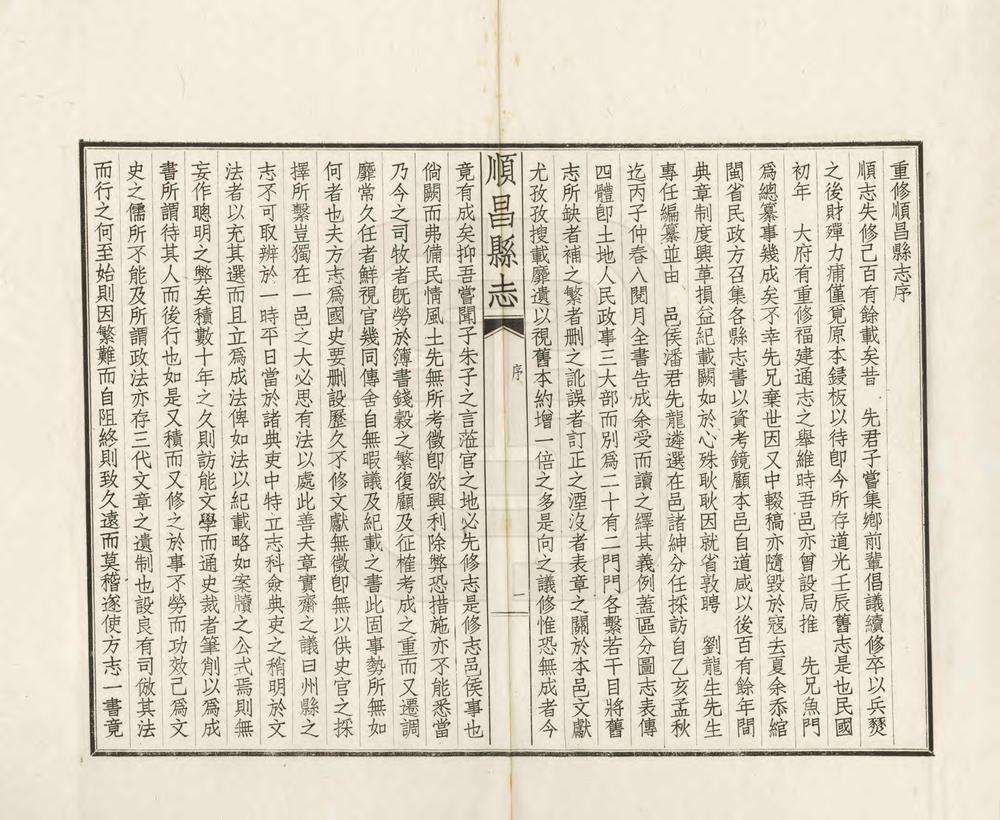 重修順昌縣志序
順志失修已百有餘載矣昔　先君子嘗集鄉前輩倡議續修卒以兵燹
之後財殫力痡僅覓原本鋟板以待卽今所存道光壬辰舊志是也民國
初年　大府有重修福建通志之舉維時吾邑亦曾設局推　先兄魚門
爲總纂事幾成矣不幸先兄棄世因又中輟稿亦隨毀於寇去夏余忝綰
閩省民政方召集各縣志書以資考鏡顧本邑自道咸以後百有餘年間
典章制度興革損益紀載闕如於心殊耿耿因就省敦聘　劉龍生先生
專任編纂並由　邑侯潘君先龍遴選在邑諸紳分任採訪自乙亥孟秋
迄丙子仲春八閱月全書告成余受而讀之繹其義例蓋區分圖志表傳
四體卽土地人民政事三大部而別爲二十有二門門各繫若干目將舊
志所缺者補之繁者刪之訛誤者訂正之湮沒者表章之關於本邑文獻
尤孜孜搜載靡遺以視舊本約增一倍之多是向之議修惟恐無成者今
順昌縣志
序
一
竟有成矣抑吾嘗聞子朱子之言蒞官之地必先修志是修志邑侯事也
倘闕而弗備民情風土先無所考徵卽欲興利除弊恐措施亦不能悉當
乃今之司牧者旣勞於簿書錢穀之繁復顧及征榷考成之重而又遷調
靡常久任者鮮視官幾同傳舍自無暇議及紀載之書此固事勢所無如
何者也夫方志爲國史要刪設歷久不修文獻無徵卽無以供史官之採
擇所繫豈獨在一邑之大必思有法以處此善夫章實齋之議曰州縣之
志不可取辨於一時平日當於諸典吏中特立志科僉典吏之稍明於文
法者以充其選而且立爲成法俾如法以紀載略如案牘之公式焉則無
妄作聰明之弊矣積數十年之久則訪能文學而通史裁者筆削以爲成
書所謂待其人而後行也如是又積而又修之於事不勞而功效已爲文
史之儒所不能及所謂政法亦存三代文章之遺制也設良有司倣其法
而行之何至始則因繁難而自阻終則致久遠而莫稽遂使方志一書竟